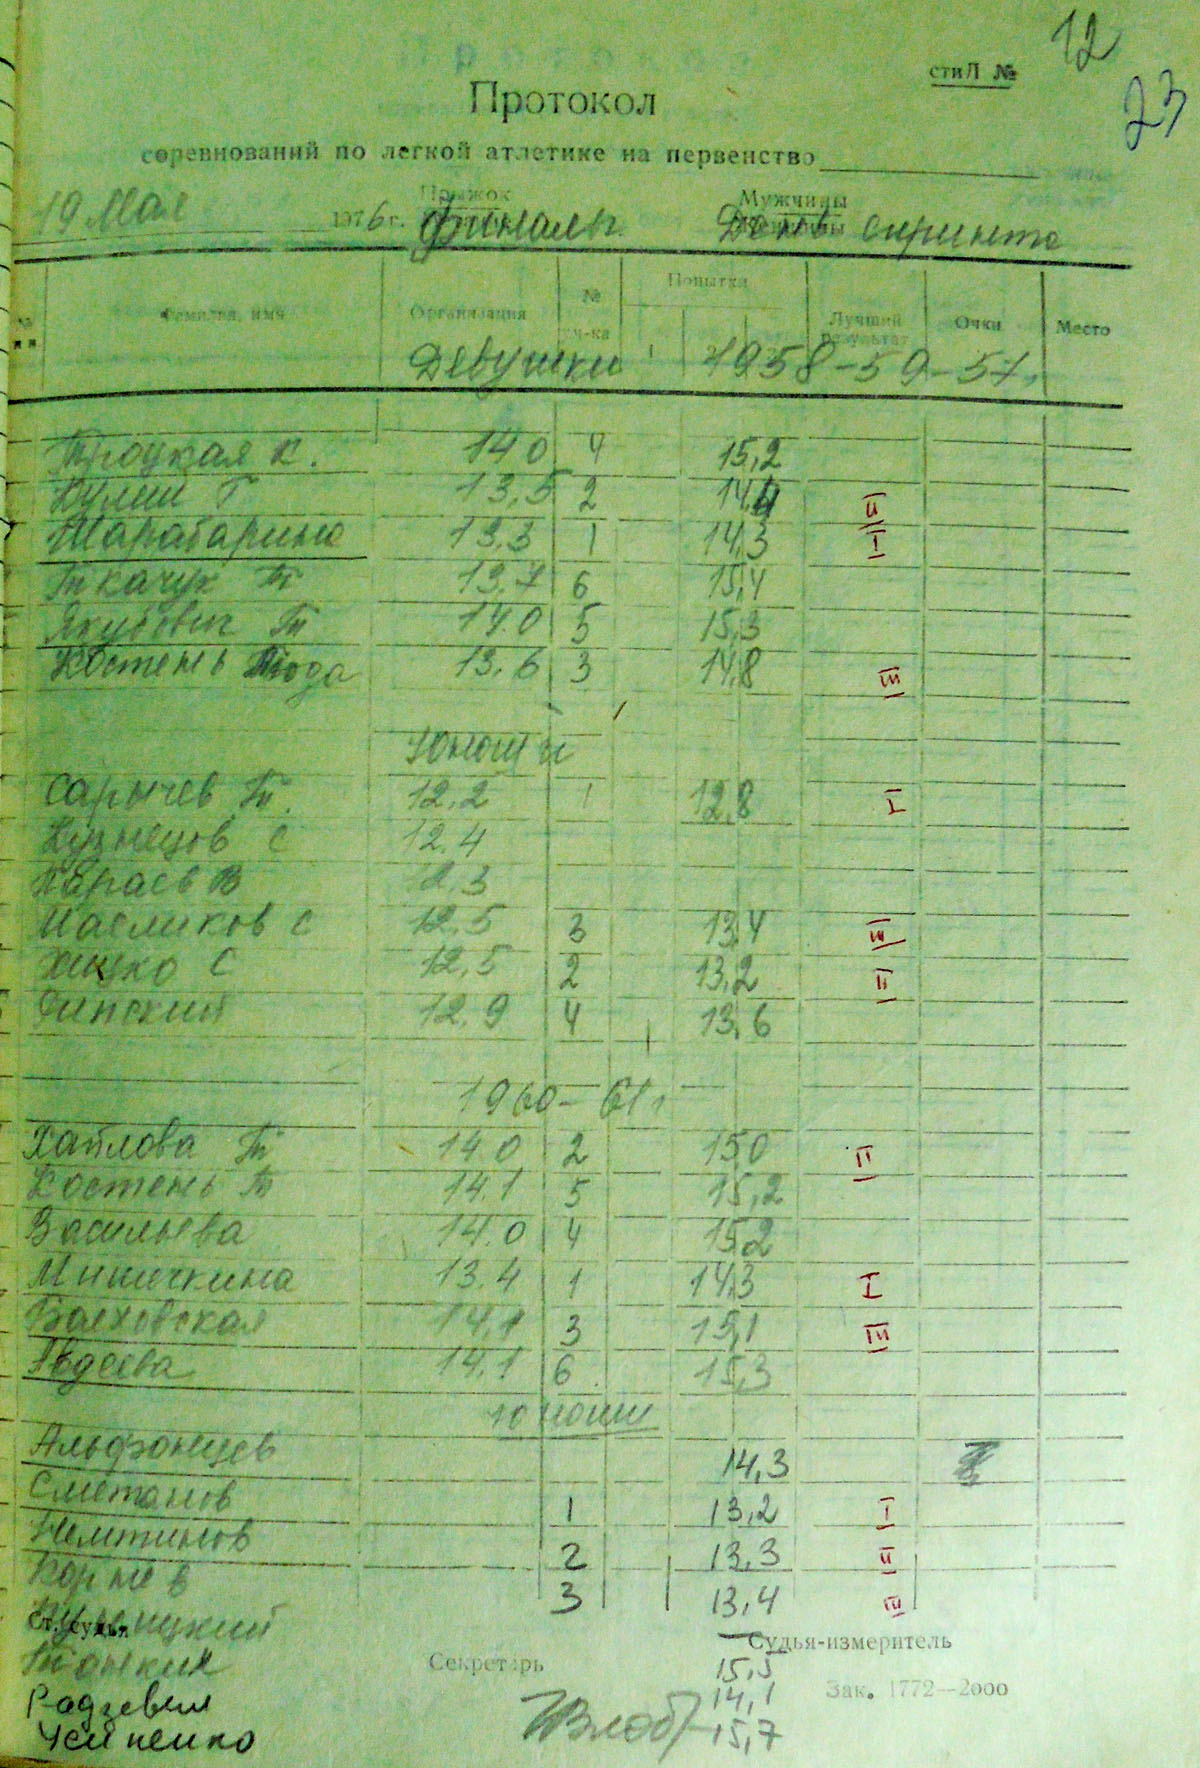 12
стиЛ №
23
Протокол
соревнований по легкой атлетике на первенство
Прыжок Мужчины
19 Мая 1976 г. финалы День спринта
№ п п Фамилия, имя Организация № уч-ка Попытки Лучший результат Очки Место
Девушки 1958-59-57.
Троцкая К. 14.0 4 15,2
Кулиш Г 13.5 2 14,4 II
Шарабарина 13.3 1 14,3 I
Ткачук Т 13.7 6 15,4
Якубович Т 14.0 5 15,3
Костень Люда 13.6 3 14,8 III
Юноши
Сарычев Т. 12.2 1 12,8 I
Кузнецов С 12.4
Караев В 12.3
Масликов С 12.5 3 13,4 III
С 12.5 2 13,2 II
Финский 12.9 4 13,6
1960-61г
Хайлова Т 14.0 2 15,0 II
Костень Т 14.1 5 15,2
Васильева 14.0 4 15,2
Мишечкина 13.4 1 14,3 I
14.1 3 15,1 III
Авдеева 14.1 6 15,3
юноши
Альфонцев 14,3
Сметанов 1 13,2 I
2 13,3 II
Корнев 3 13,4 III
Ст. судья Судья-измеритель
Секретарь 15,5
Радзевил 14,1 Зак. 1772—2000
15,7